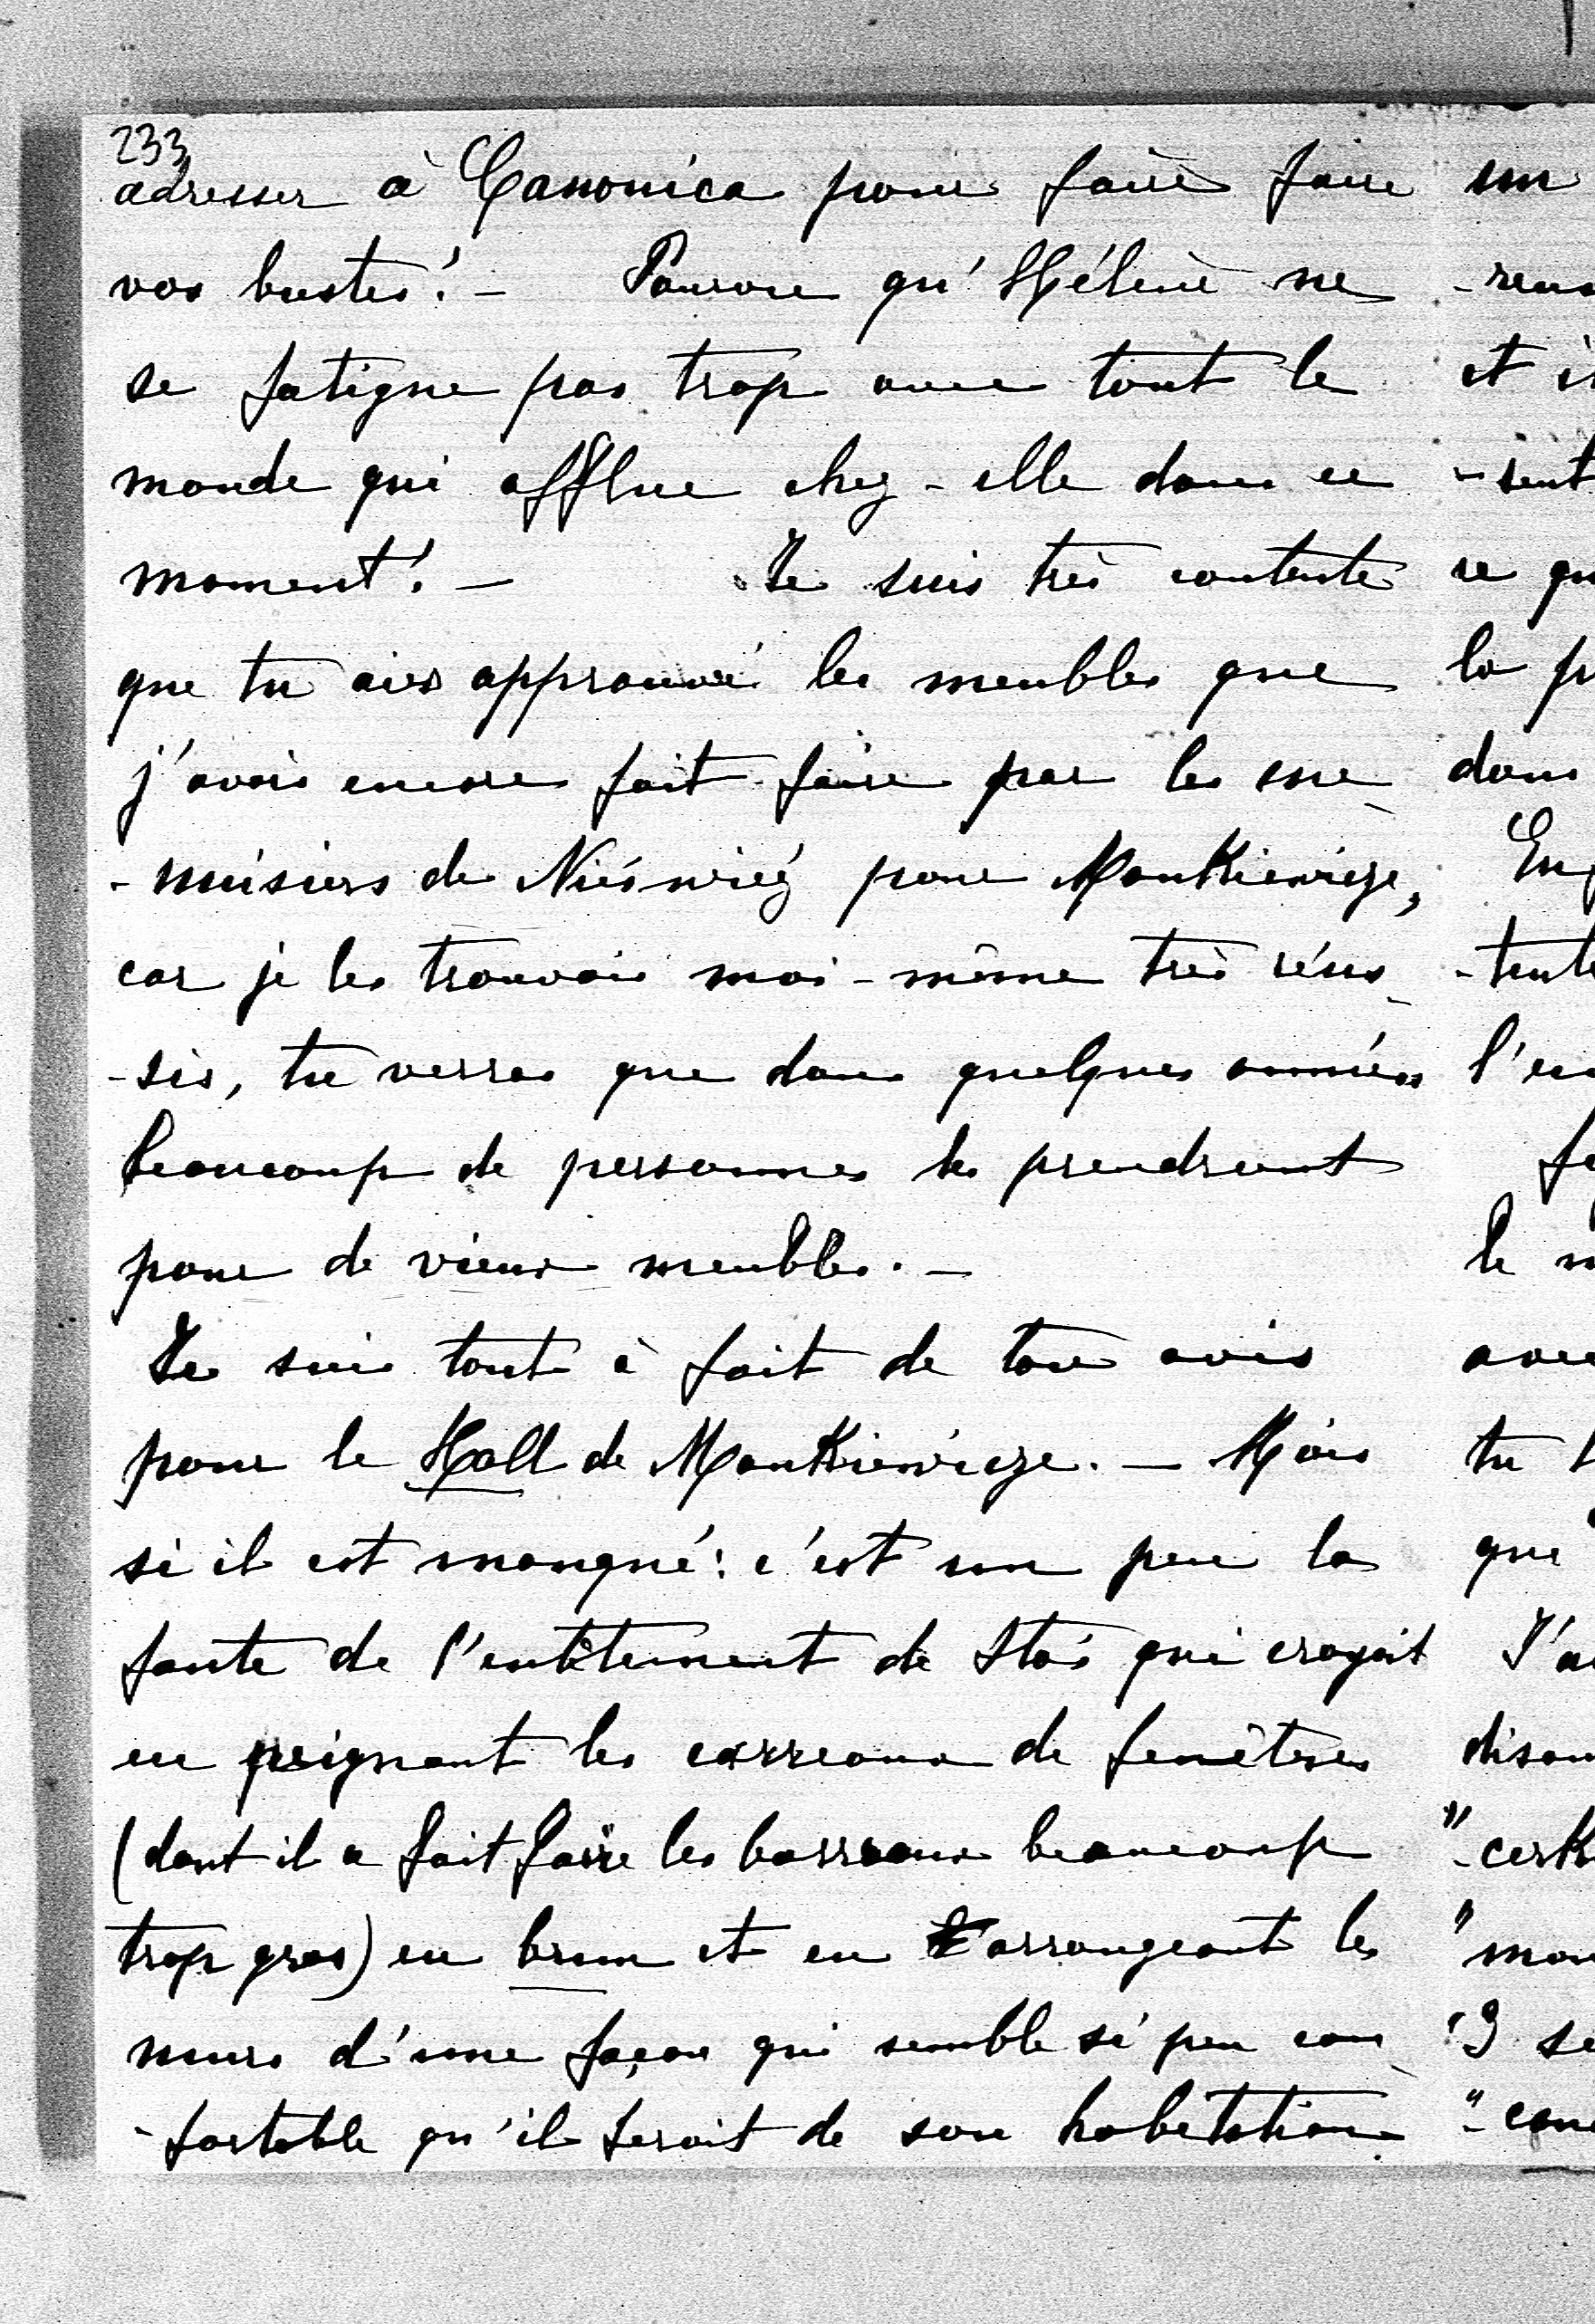 233
adresser à Canonica pour faire faire
vos bustes! – Pourvu qu'Hélène ne
se fatigue pas trop avec tout le
monde qui afflue chez-elle dans ce
moment! – Je suis très contente
que tu aies approuvé les meubles que
j'avais encore fait faire par les me-
-nuisiers de Nieśwież pour Mankiewicze,
car je les trouvais moi-même très réus-
-sis, tu verras que dans quelques années
beaucoup de personnes les prendront
pour de vieux meubles. –
Je suis tout à fait de ton avis
pour le Hall de Mankiewicze. – Mais
si il est manqué: c'est un peu la
faute de l'entêtement de Staś qui croyait
en peignant les carreaux de fenêtres
(dont il a fait faire les barreaux beaucoup
trop gros) en brun et en arrangeant les
murs d'une façon qui semble si peu con-
-fortable qu'il ferait de son habitation
un
et
-sent
la
dans
-tente
le
tu
que